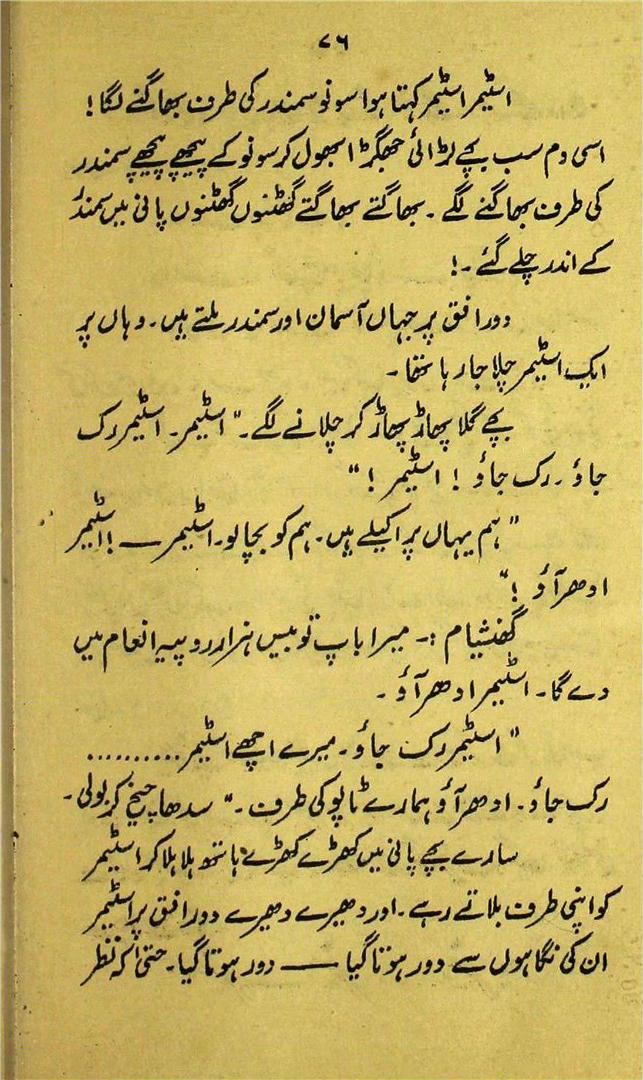 ۷۶
اسٹیمر اسٹیمر کہتا ہوا سونو سمندر کی طرف بھاگنے لگا!
اسی دم سب بچے لڑائی جھگڑا بھول کر سونو کے پیچھے پیچھے سمندر
کی طرف بھاگنے لگے۔ بھاگتے بھاگتے گھٹنوں گھٹنوں پانی میں سمندر
کے اندر چلے گئے۔!
دور افق پر جہاں آسمان اور سمندر ملتے ہیں۔ وہاں پر
ایک اسٹیمر چلا جا رہا تھا۔
بچے گلا پھاڑ پھاڑ کر چلانے لگے۔ "اسٹیمر۔ اسٹیمر رک
جاؤ۔ رک جاؤ! اسٹیمر!"
"ہم یہاں پر اکیلے ہیں۔ ہم کو بچا لو۔ اسٹیمر ——! اسٹیمر
ادھر آؤ!"
گھنشیام :۔ میرا باپ تو بیس ہزار روپیہ انعام میں
دے گا۔ اسٹیمر ادھر آؤ۔
"اسٹیمر رک جاؤ۔ میرے اچھے اسٹیمر..........
رک جاؤ۔ ادھر آؤ ہمارے ٹاپو کی طرف۔" سدھا چیخ کر بولی۔
سارے بچے پانی میں کھڑے کھڑے ہاتھ ہلا ہلا کر اسٹیمر
کو اپنی طرف بلاتے رہے۔ اور دھیرے دھیرے دور افق پر اسٹیمر
ان کی نگاہوں سے دور ہوتا گیا —— دور ہوتا گیا۔ حتیٰ کہ نظر